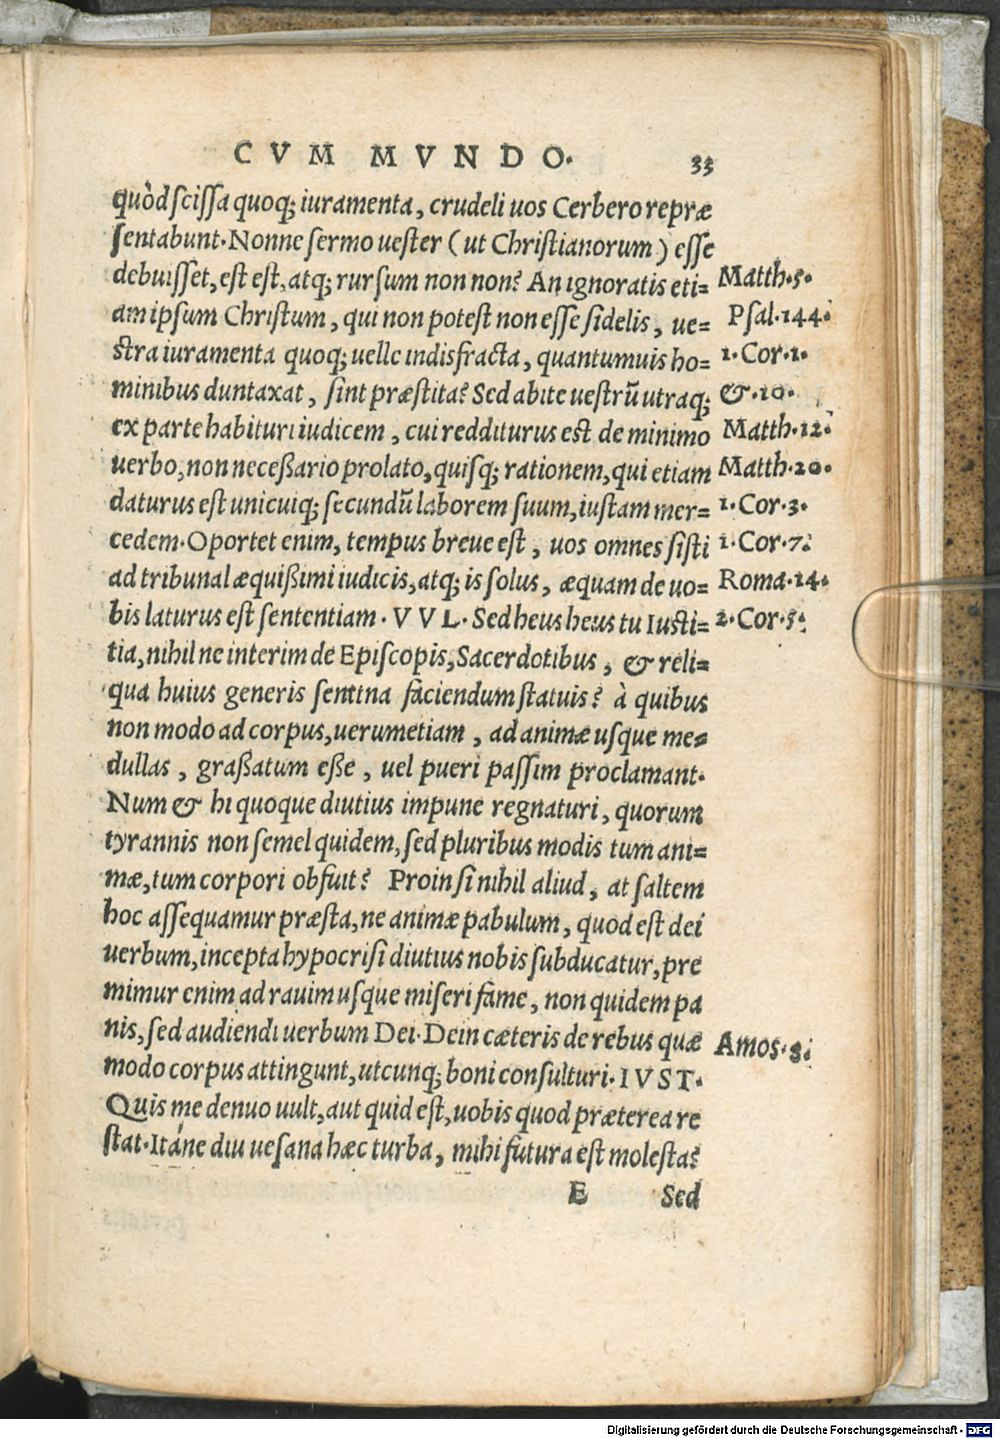 CVM MVNDO. 33
quòd ſciſſa quoq; iuramenta, crudeli uos Cerbero repræ
ſentabunt. Nonne ſermo ueſter (ut Chriſtianorum) eſſe
debuiſſet, eſt eſt, atq; rurſum non non? An ignoratis eti= Matth.5.
am ipſum Chriſtum, qui non poteſt non eſſe fidelis, ue= Pſal.144.
ſtra iuramenta quoq; uelle indisfracta, quantumuis ho= 1. Cor.1.
minibus duntaxat, ſint præſtita? Sed abite ueſtrũ utraq; &.10.
ex parte habituri iudicem, cui redditurus eſt de minimo Matth.12.
uerbo, non neceßario prolato, quiſq; rationem, qui etiam Matth.20.
daturus eſt unicuiq; ſecundũ laborem ſuum, iuſtam mer= 1. Cor.3.
cedem. Oportet enim, tempus breue eſt, uos omnes ſiſti 1. Cor.7.
ad tribunal æquißimi iudicis, atq; is ſolus, æquam de uo= Roma.14.
bis laturus eſt ſententiam. VVL. Sed heus heus tu Iuſti= 2. Cor.5.
tia, nihil ne interim de Epiſcopis, Sacerdotibus, & reli=
qua huius generis ſentina faciendum ſtatuis? à quibus
non modo ad corpus, uerumetiam, ad animæ uſque me=
dullas, graßatum eße, uel pueri paſſim proclamant.
Num & hi quoque diutius impune regnaturi, quorum
tyrannis non ſemel quidem, ſed pluribus modis tum ani=
mæ, tum corpori obfuit? Proin ſi nihil aliud, at ſaltem
hoc aſſequamur præſta, ne animæ pabulum, quod eſt dei
uerbum, incepta hypocriſi diutius nobis ſubducatur, pre
mimur enim ad rauim uſque miſeri fame, non quidem pa
nis, ſed audiendi uerbum Dei. Dein cæteris de rebus quæ Amos.8.
modo corpus attingunt, utcunq; boni conſulturi. IVST.
Quis me denuo uult, aut quid eſt, uobis quod præterea re
ſtat. Itáne diu ueſana hæc turba, mihi futura eſt moleſta?
E Sed
Digitalisierung gefördert durch die Deutsche Forschungsgemeinschaft - DFG